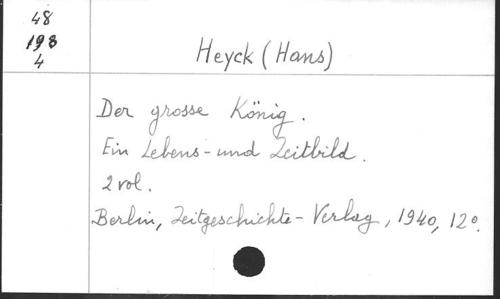 48
198
4
Heyck (Hans)
Der grosse König.
Ein Lebens- und Zeitbild.
2 vol.
Berlin, Zeitgeschichte-Verlag, 1940, 12º.